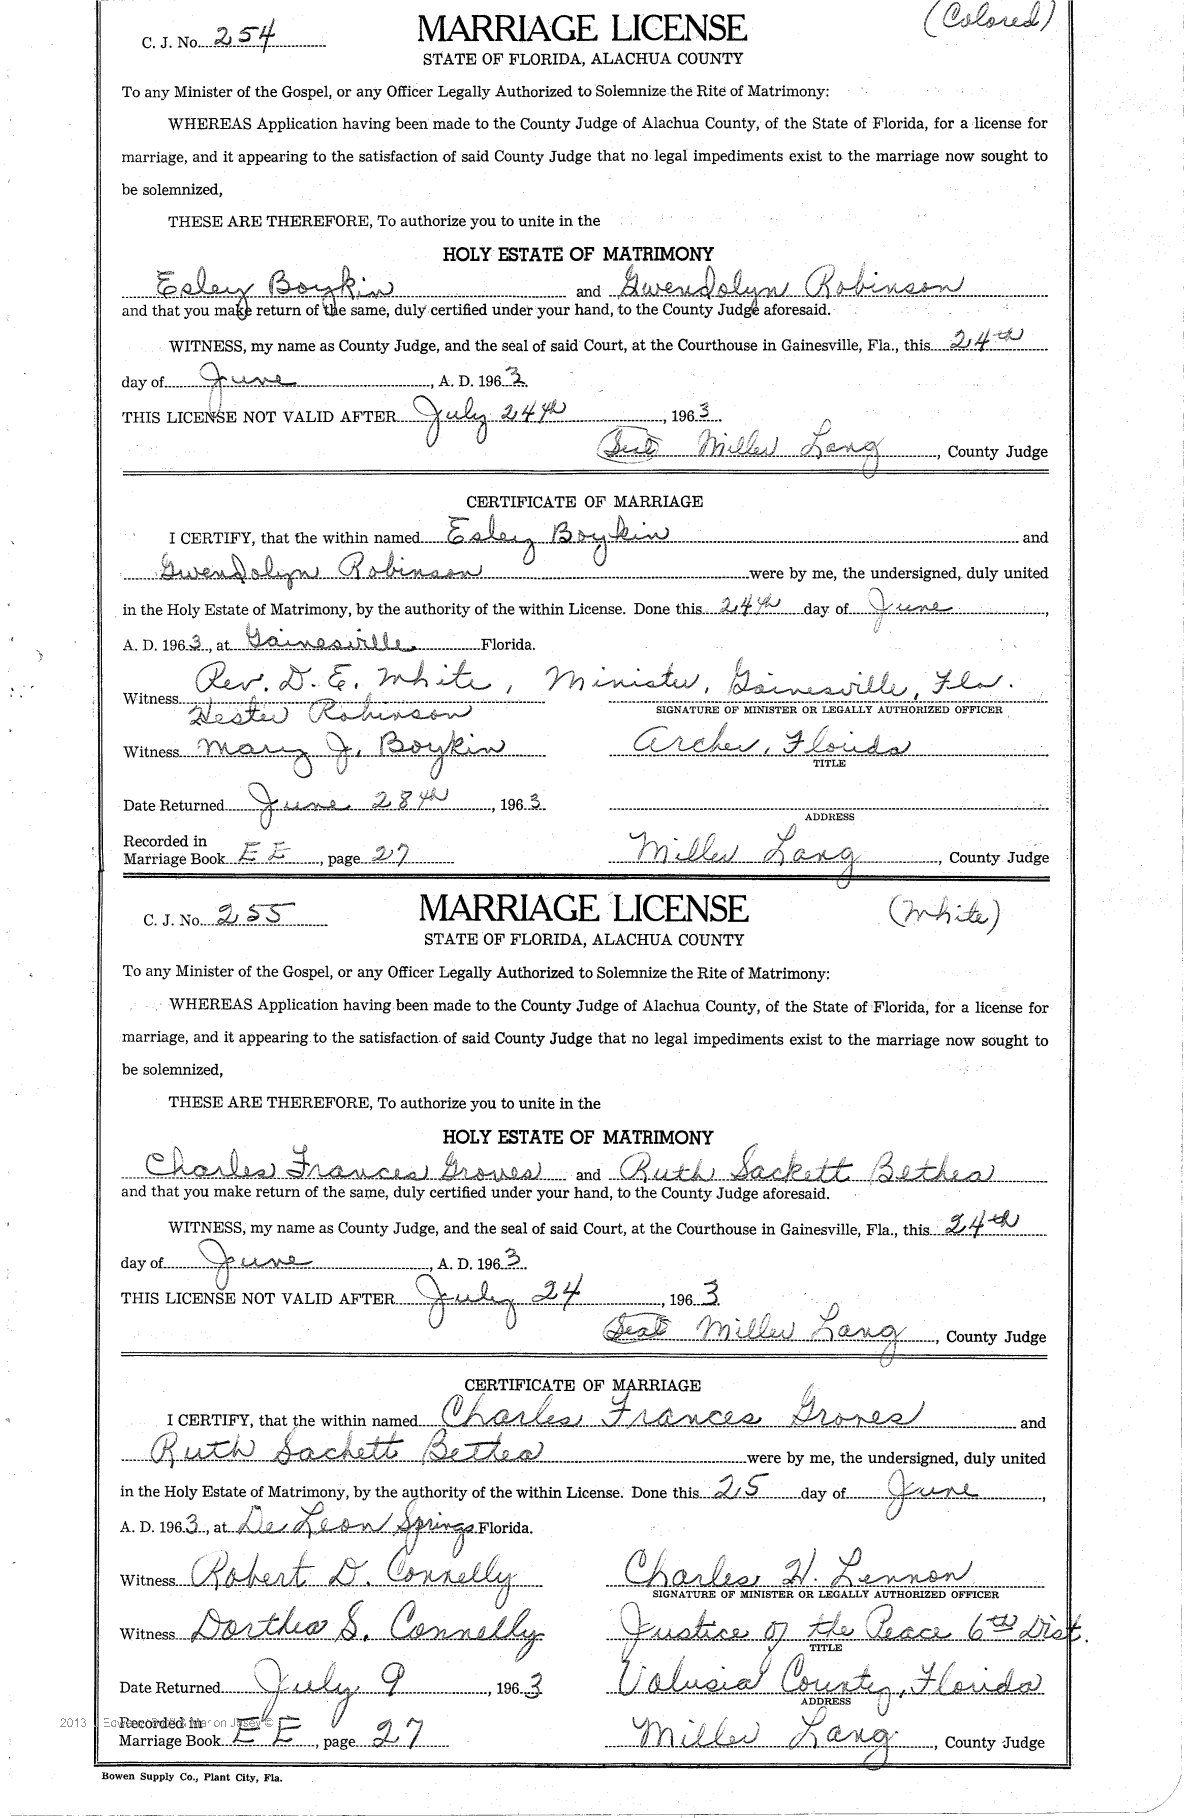 (Colored)
C. J. No. 254
MARRIAGE LICENSE
STATE OF FLORIDA, ALACHUA COUNTY
To any Minister of the Gospel, or any Officer Legally Authorized to Solemnize the Rite of Matrimony:
WHEREAS Application having been made to the County Judge of Alachua County, of the State of Florida, for a license for
marriage, and it appearing to the satisfaction of said County Judge that no legal impediments exist to the marriage now sought to
be solemnized,
THESE ARE THEREFORE, To authorize you to unite in the
HOLY ESTATE OF MATRIMONY
Esley Boykin and Gwendolyn Robinson
and that you make return of the same, duly certified under your hand, to the County Judge aforesaid.
WITNESS, my name as County Judge, and the seal of said Court, at the Courthouse in Gainesville, Fla., this 24th
day of June, A. D. 1963.
THIS LICENSE NOT VALID AFTER July 24th, 1963.
(Seal) Miller Lang, County Judge
CERTIFICATE OF MARRIAGE
I CERTIFY, that the within named Esley Boykin and
Gwendolyn Robinson were by me, the undersigned, duly united
in the Holy Estate of Matrimony, by the authority of the within License. Done this 24th day of June,
A. D. 1963, at Gainesville Florida.
Witness Rev. D. E. White, Minister, Gainesville, Fla.
SIGNATURE OF MINISTER OR LEGALLY AUTHORIZED OFFICER
Hester Robinson
Witness Mary J. Boykin Archer, Florida
TITLE
Date Returned June 28th, 1963
ADDRESS
Recorded in
Marriage Book EE, page 27 Miller Lang, County Judge
C. J. No. 255
MARRIAGE LICENSE
(White)
STATE OF FLORIDA, ALACHUA COUNTY
To any Minister of the Gospel, or any Officer Legally Authorized to Solemnize the Rite of Matrimony:
WHEREAS Application having been made to the County Judge of Alachua County, of the State of Florida, for a license for
marriage, and it appearing to the satisfaction of said County Judge that no legal impediments exist to the marriage now sought to
be solemnized,
THESE ARE THEREFORE, To authorize you to unite in the
HOLY ESTATE OF MATRIMONY
Charles Frances Groves and Ruth Sackett Bethea
and that you make return of the same, duly certified under your hand, to the County Judge aforesaid.
WITNESS, my name as County Judge, and the seal of said Court, at the Courthouse in Gainesville, Fla., this 24th
day of June, A. D. 1963.
THIS LICENSE NOT VALID AFTER July 24, 1963.
(Seal) Miller Lang, County Judge
CERTIFICATE OF MARRIAGE
I CERTIFY, that the within named Charles Frances Groves and
Ruth Sackett Bethea were by me, the undersigned, duly united
in the Holy Estate of Matrimony, by the authority of the within License. Done this 25 day of June,
A. D. 1963, at De Leon Springs Florida.
Witness Robert D. Connelly Charles H. Lennon
SIGNATURE OF MINISTER OR LEGALLY AUTHORIZED OFFICER
Witness Dorthea S. Connelly Justice of the Peace 6th Dist.
TITLE
Date Returned July 9, 1963 Volusia County, Florida
ADDRESS
2013
Recorded in
Marriage Book EE, page 27 Miller Lang, County Judge
Bowen Supply Co., Plant City, Fla.